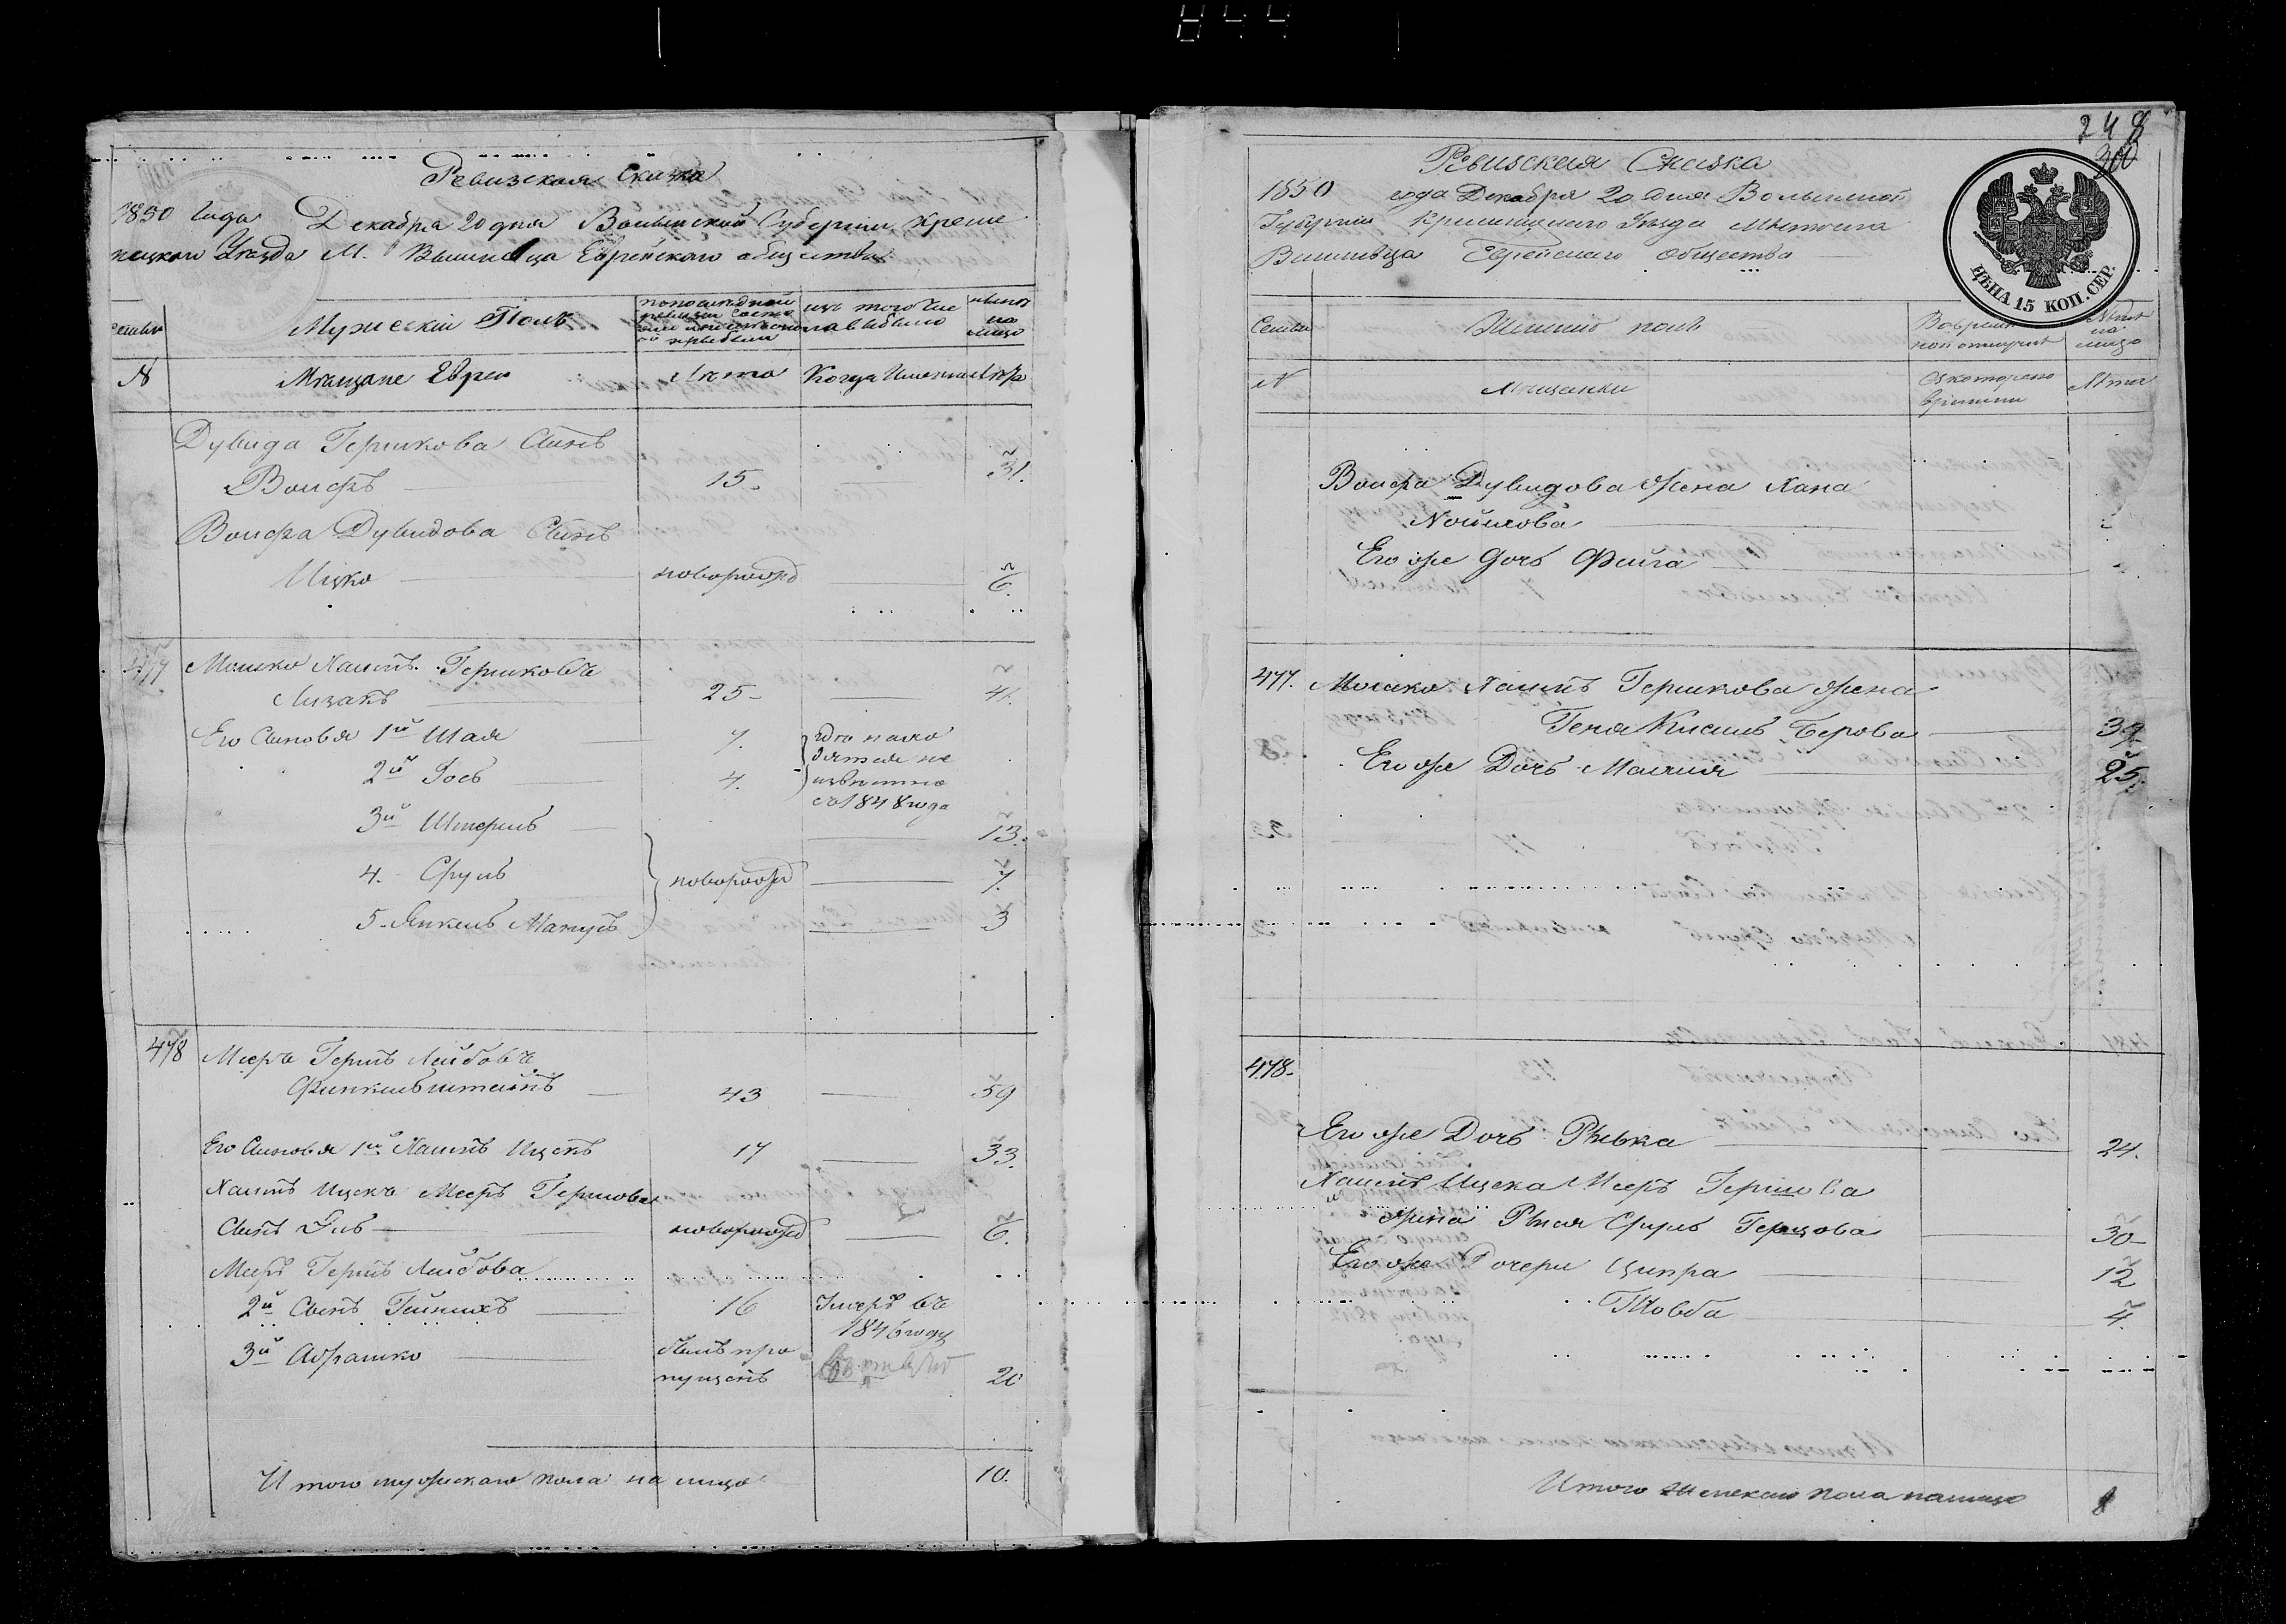 844
Ревизская сказка
1850 Года Декабря 20 дня Волынской Губернии Креме
нецкого Уезда М. Вишневца Еврейского общества
семьи
Мужескій Полъ
по последней
ревизіи состо
изъ того чис
ла выбыло
ныне
на
лицо
№
Мещане Евреи
Лета
Когда именно
Лета
Дувида Гершкова Сынъ
Вольфъ 15. 31.
Вольфа Дувидова Сынъ
Ицко новорожд 6.
477 Мошко Хаимъ Гершковъ
Лизакъ 25 41.
Его Сыновья 1й Шая 7.
2й Іосъ 4.
неизвестно
съ 1848 года
3й Шмерль 13.
4. Сруль новорожд 7.
5. Янкель Манусъ 3
478 Мееръ Гершъ Лейбовъ
Финкельштейнъ 43 59
Его Сыновья 1й Хаимъ Ицекъ 17 33.
Хаимъ Ицека Мееръ Гершова
Сынъ новорожд 6.
Мееръ Гершъ Лейбова
2й Сынъ Гейнихъ 16 Умеръ въ
1846 году
3й Абрашко былъ про
пущенъ 20
Итого мужескаго пола на лицо 10.
248
300
Ревизская Сказка
1850 года Декабря 20 дня Волынской
Губерніи Кременецкаго Уезда местечка
Вишневца Еврейскаго Общества
ЦѢНА 15 КОП. СЕР.
Семьи
Женскій полъ
Во времен
ной отлучке
Ныне
на
лицо
№
Мещанки
Съ котораго
времени
Лета
Вольфа Дувидова жена Хана
Нойхова
Его же дочь Фейга
477. Мошко Хаимъ Гершкова жена
Геня Кисиль Берова 39.
Его же Дочь Малия 25.
478.
Его же Дочь Ривка 24.
Хаимъ Ицека Мееръ Гершова
жена Рися Сруль Герцова 30
Его же Дочери Ципра 12
Товба 4.
Итого женскаго пола налицо 8